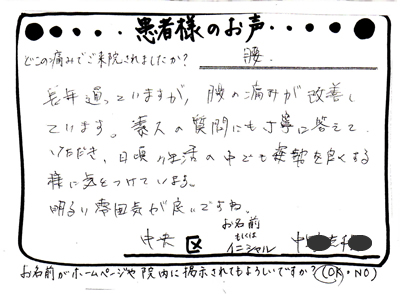 患者様のお声
どこの痛みでご来院されましたか? 腰.
長年通っていますが、腰の痛みが改善し
ています。素人の質問にも丁寧に答えて
いただき、日頃の生活の中でも姿勢を良くする
様に気をつけています。
明るい雰囲気が良いですね。
中央区 お名前もしくはイニシャル 中
お名前がホームページや院内に掲示されてもよろしいですか? (OK・NO)